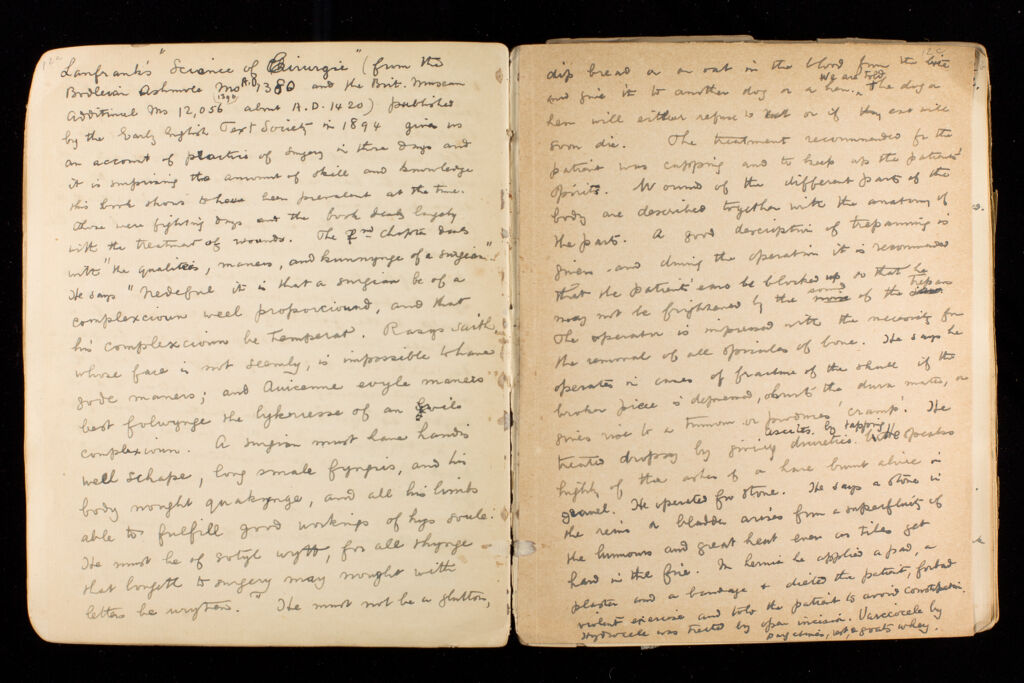 Lanfrank's "Science of Cirurgie" (from the
Bodleian Ashmole Ms A.D. 1380 and the Brit. Museum
Additional Ms 12,056 about A.D. 1420) published
by the Early English Text Society in 1894 gives us
an account of practice of surgery in those days and
it is surprising the amount of skill and knowledge
this book shows to have been prevalent at the time.
Those were fighting days and the book deals largely
with the treatment of wounds. The 2nd Chapter deals
with "the qualities, maners, and kunnynge of a surgian".
He says "Nedeful it is that a surgian be of a
complexcioun weel proporciound, and that
his complexcioun be temperat. Rasys saith,
whose face is not seemly, is impossible to have
gode maners; and Avicenne evyle maners
best folwynge the lykenesse of an evile
complexioun. A surgian must have handis
well schape, long smale fyngris, and his
body nought quakynge, and all his limbs
able to fulfill good workings of hys soule.
He must be of sotyl wytt, for all thynge
that longeth to surgery may nought with
letters be wryten." He must not be a glutton,
dip bread or an oat in the blood from the bite
and give it to another dog or a hen. We are told The dog or
hen will either refuse to eat or if they eat will
soon die. The treatment recommended for the
patient was cupping and to keep up the patients'
spirits. Wound of the different parts of the
body are described together with the anatomy of
the part. A good description of trepanning is
given and during the operation it is recommended
that the patients ears be blocked up so that he
may not be frightened by the sound of the trepan
The operator is impressed with the necessity for
the removal of all spicules of bone. He says he
operates in cases of fracture of the skull if the
broken piece is depressed, hurts the dura mater, or
gives rise to a tumour or produces 'cramp'. He
treated dropsy by giving diuretics. ascites by tapping. He speaks
highly of the ashes of a hare burnt alive in
gravel. He operated for stone. He says a stone in
the reins or bladder arises from a superfluity of
the humours and great heat even as tiles get
hard in the fire. In hernia he applies a pad, a
plaster and a bandage & dieted the patient, forbad
violent exercise and told the patient to avoid constipation.
Hydrocele was treated by open incision. Varicocele by
purgatives, rest, & goats whey.